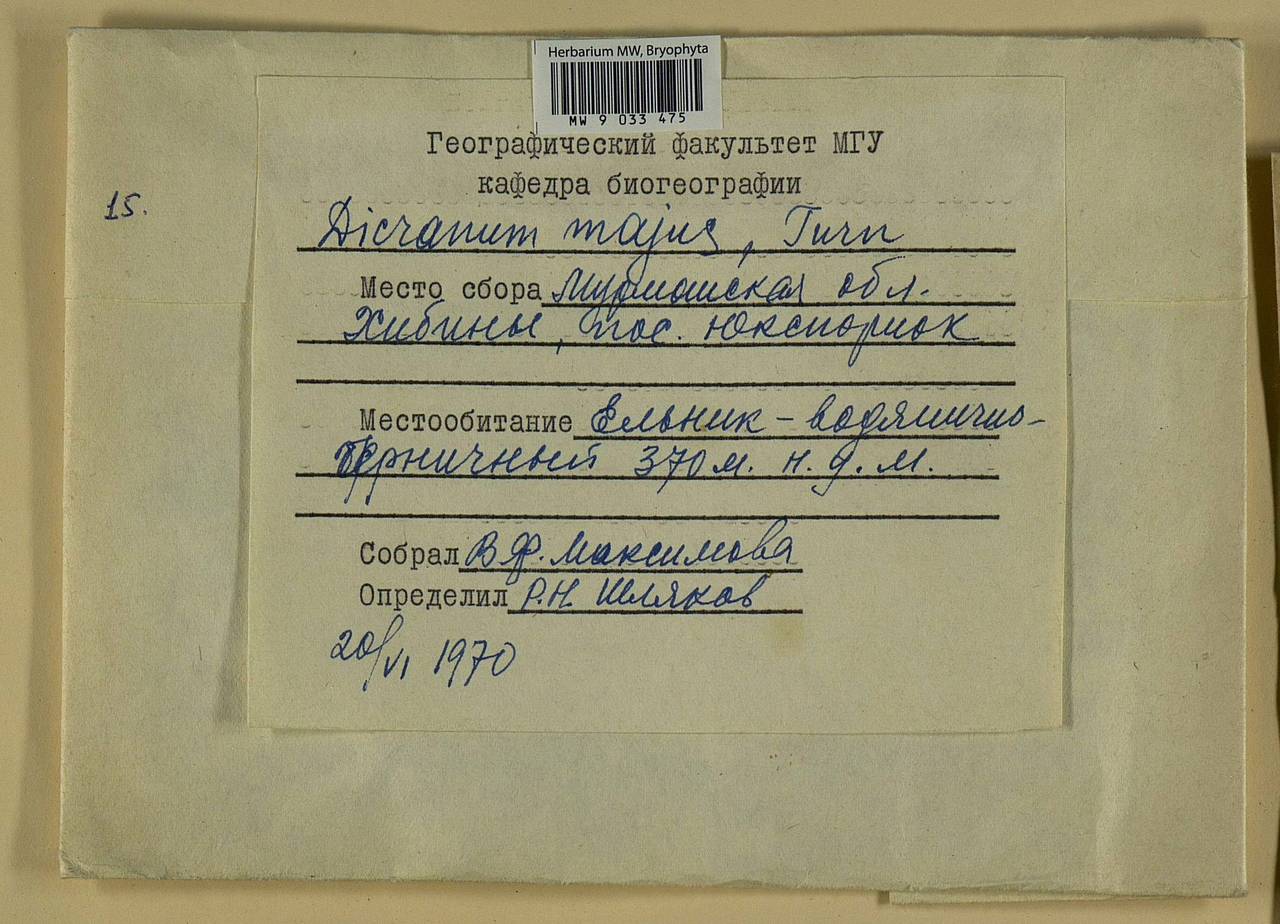 Herbarium MW, Bryophyta
MW 9 033 475
Географический факультет МГУ
кафедра биогеографии
15.
Dicranum majus, Turn
Место сбора Мурманская обл.
Хибины, пос. Юкспориок
Местообитание Ельник - водянично-
черничный 370 м. н. у. м.
Собрал В Ф. Максимова
Определил Р.Н. Шляков
20/VI 1970